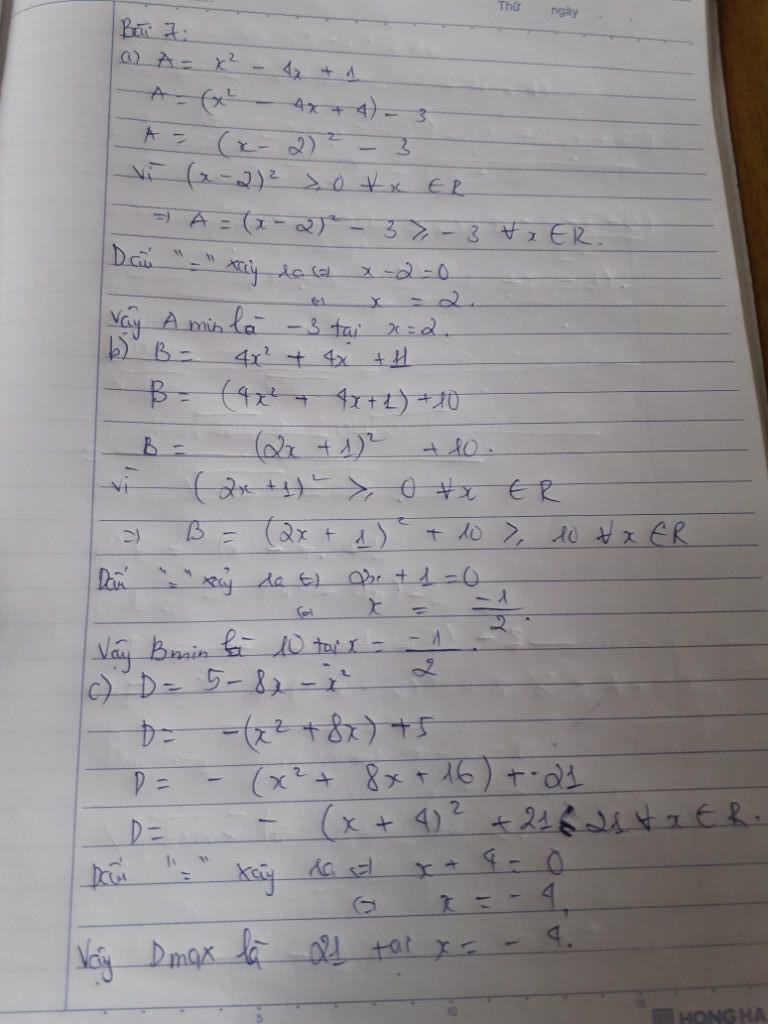 Thứ ngày
Bài 7:
a) A = x² - 4x + 1
A = (x² - 4x + 4) - 3
A = (x - 2)² - 3
Vì (x - 2)² ≥ 0 ∀x ∈ R
⇒ A = (x - 2)² - 3 ≥ -3 ∀x ∈ R.
Dấu "=" xảy ra ⇔ x - 2 = 0
⇔ x = 2.
Vậy A min là -3 tại x = 2.
b) B = 4x² + 4x + 11
B = (4x² + 4x + 1) + 10
B = (2x + 1)² + 10.
Vì (2x + 1)² ≥ 0 ∀x ∈ R
⇒ B = (2x + 1)² + 10 ≥ 10 ∀x ∈ R
Dấu "=" xảy ra ⇔ 2x + 1 = 0
⇔ x = -1/2.
Vậy Bmin là 10 tại x = -1/2.
c) D = 5 - 8x - x²
D = -(x² + 8x) + 5
D = - (x² + 8x + 16) + 21
D = - (x + 4)² + 21 ≤ 21 ∀x ∈ R.
Dấu "=" xảy ra ⇔ x + 4 = 0
⇔ x = -4.
Vậy Dmax là 21 tại x = -4.
5 10 15
HONG HA